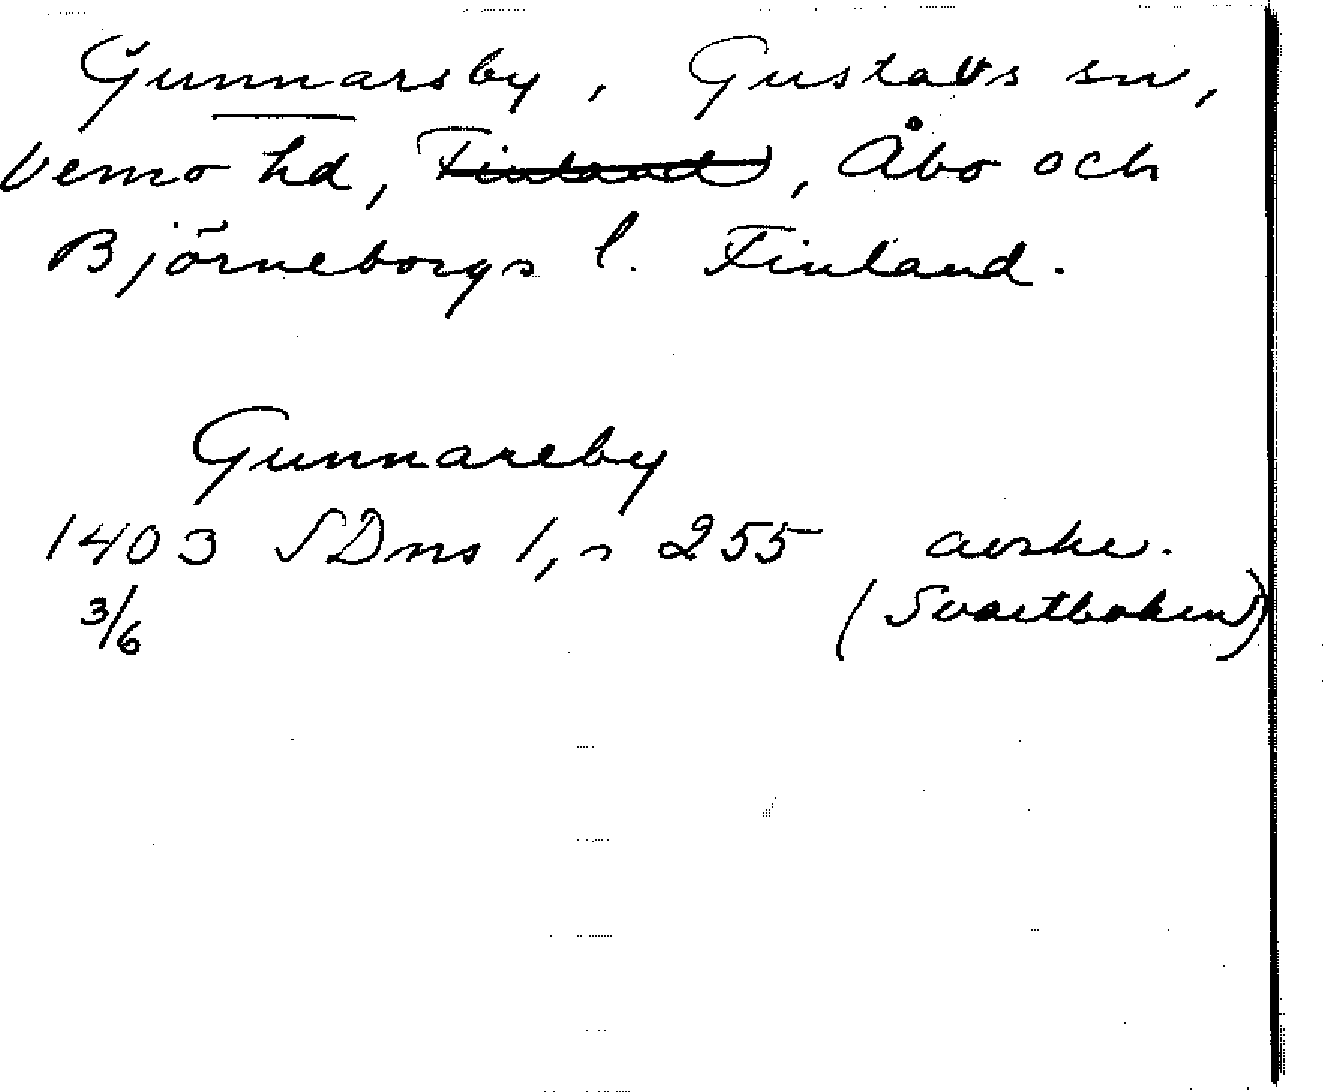 Gunnarsby, Gustavs sn,
Vemo hd, Finland, Åbo och
Björneborgs l. Finland.
Gunnareby
1403 SDns 1, s 255 avskr.
3/6 (Svartboken)